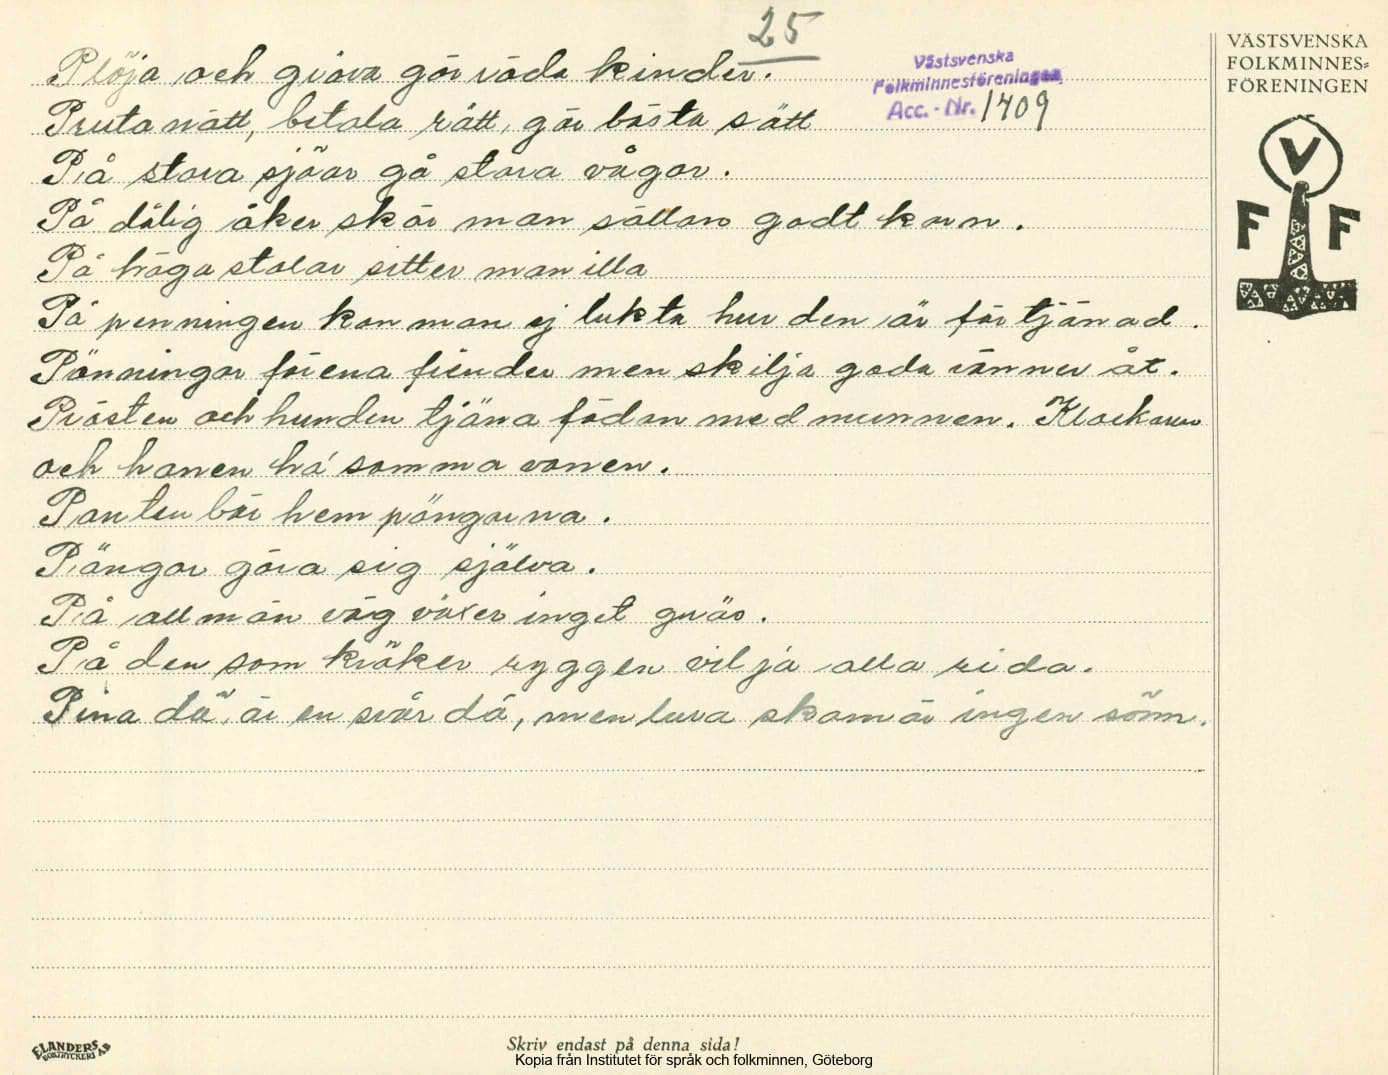 25
VÄSTSVENSKA
FOLKMINNES-
FÖRENINGEN
Västsvenska
Folkminnesföreningen
Acc. - Nr. 1409
V
F F
Plöja och gräva gör röda kinder.
Pruta nätt, betala rätt, gör bästa sätt
På stora sjöar gå stora vågor.
På dålig åker skär man sällan godt korn.
På höga stolar sitter man illa
På penningen kan man ej lukta hur den är förtjänad.
Pänningar förena fiender men skilja goda vänner åt.
Prästen och hunden tjäna födan med munnen. Klockaren
och hanen há samma vanen.
Panten bör hem pängarna.
Pängar göra sig själva.
På allmän väg växer inget gräs.
På den som kröker ryggen vilja alla rida.
Pina dä är en svår då, men lura skam är ingen sönn.
ELANDERS
BOKTRYCKERI AB
Skriv endast på denna sida!
Kopia från Institutet för språk och folkminnen, Göteborg